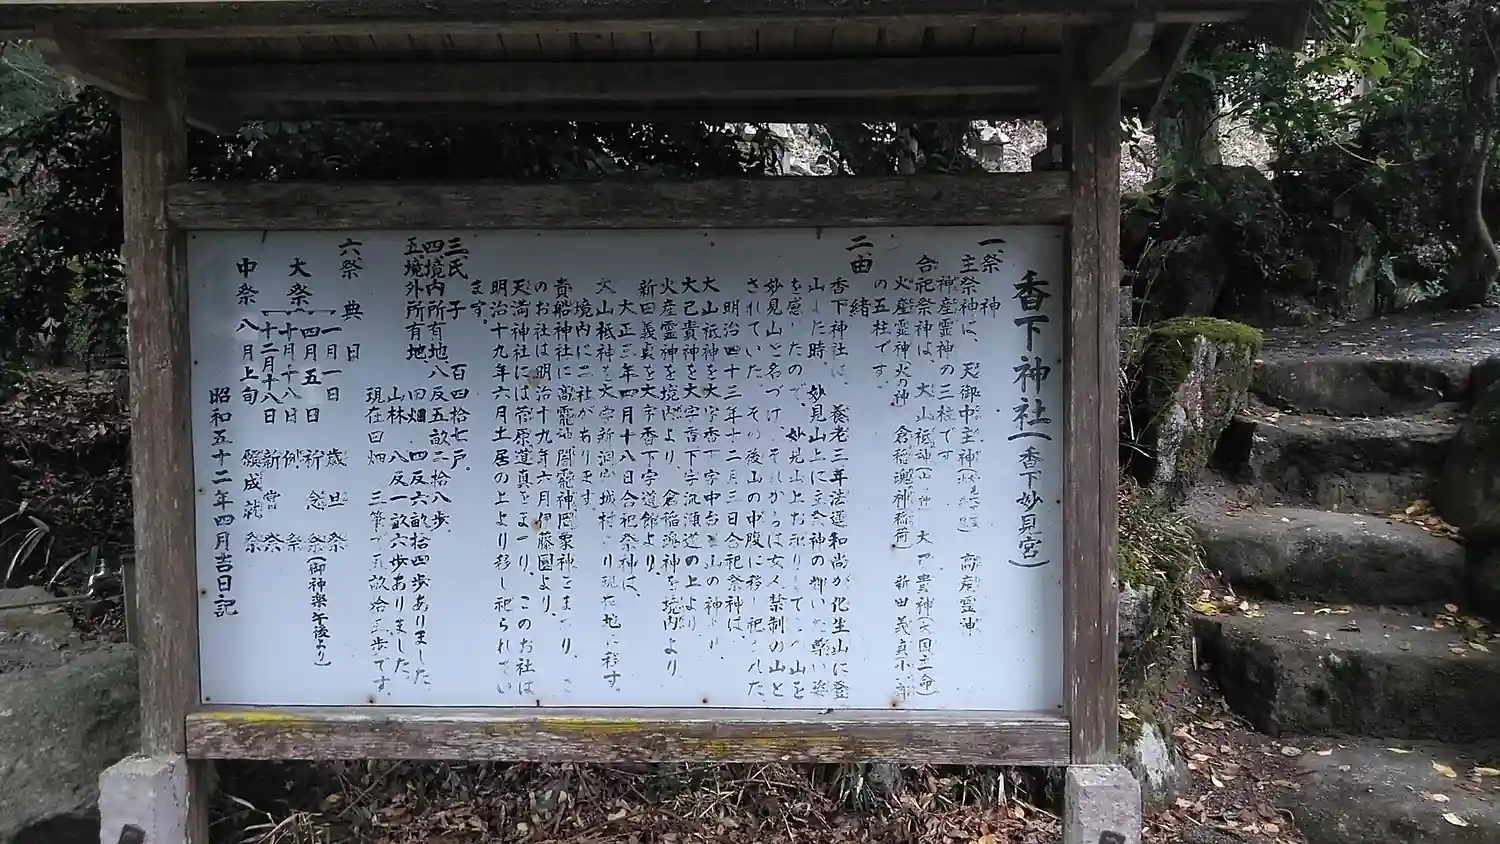 香下神社(香下妙見宮)
一祭神
主祭神は、天御中主神 高産霊神
神産霊神の三柱です。
合祀祭神は、大山祇神 大己貴神(大国主命)
火産霊神(火の神) 倉稲魂神(稲荷) 新田義貞
の五柱です。
二由緒
香下神社は、養老三年法道和尚が化生山に登
山した時、妙見山上に主祭神の
を感じたので、妙見山上お祀りして 山を
妙見山と名づけ それからは女人禁制の山と
されていた。その後山の中腹に移し祀られた
明治四十三年十二月三日合祀祭神は、
大山祇神を大字香下字中台 山の神より、
大己貴神を大字香下字流瀬道の上より
火産霊神を境内より、倉稲魂神を境内より
新田義貞を大字香下字道館より、
大正三年四月十八日合祀祭神は、
大山祇神を大字新洞字城村より現在地に移す。
境内に二社があります。
貴船神社に高龗神闇龗神罔象神をまつり、こ
のお社は明治十九年六月伊藤園より、
天満神社には菅原道真をまつり、このお社は
明治十九年六月土居の上より移し祀られてい
ます。
三氏子 百四拾七戸。
四境内所有地、八反五畝二拾八歩。
五境外所有地、田畑 四反六畝拾四歩ありました
山林 八反一畝六歩ありました、
現在田畑 三筆 五畝拾五歩です。
六祭典日
大祭 一月一日 歳旦祭
四月五日 祈念祭(御神楽午後より)
十月十八日 例祭
十二月十八日 新嘗祭
中祭 八月上旬 願成就祭
昭和五十二年四月吉日記